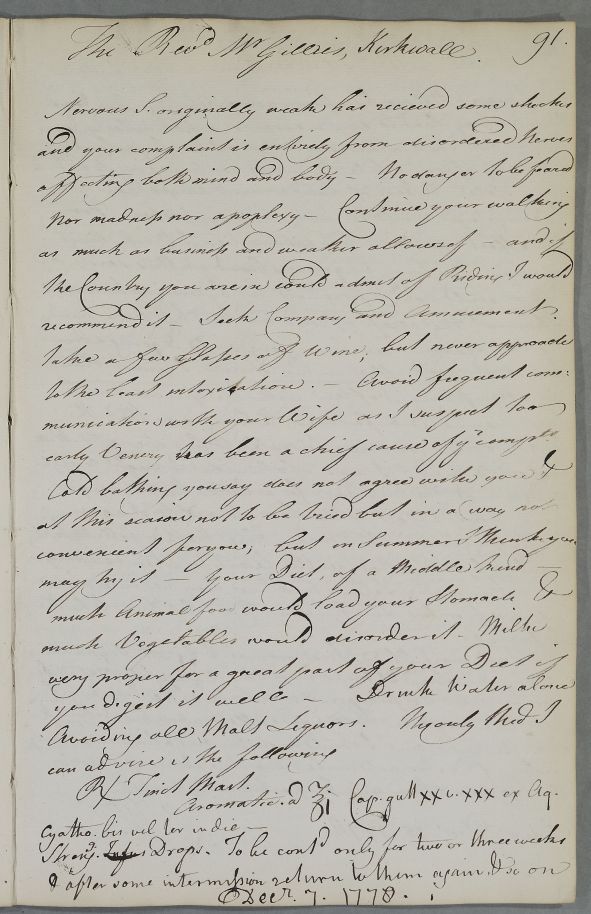 The Revd. Mr Gillies, Kirkwall. 91.
Nervous S. originally weak has recieved some shocks
and your complaint is entirely from disordered Nerves
affecting both mind and body – No danger to be feared
Nor madness nor apoplexy – Continue your walking
as much as business and weather allows of – and if
the Country you are in could admit of Riding I would
recommend it – Seek Company and Amusement.
take a few Glasses of Wine, but never approach
to the least intoxication. – Avoid frequent com:
munication with your Wife as I suspect too
early Venery has been a chief cause of yr. complts
Cold bathing you say does not agree with you &
at this season not to be tried but in a way not
convenient for you; but in Summer I think you
may try it – Your Diet, of a Middle kind –
much Animal food would load your Stomach &
much Vegetables would disorder it. Milk
very proper for a great part of your Diet if
you digest it well – Drink Water alone
Avoiding all Malt Liquors. The only Med. I
can advise is the following
℞ Tinct Mart.
Aromatic. a ʒi Cap. gutt xxv. xxx ex Aq.
Cyatho. bis vel ter in die –
Streng. Drops. To be contd only for two or three weeks
& after some intermission return to them again, & so on
Decr. 7. 1778.